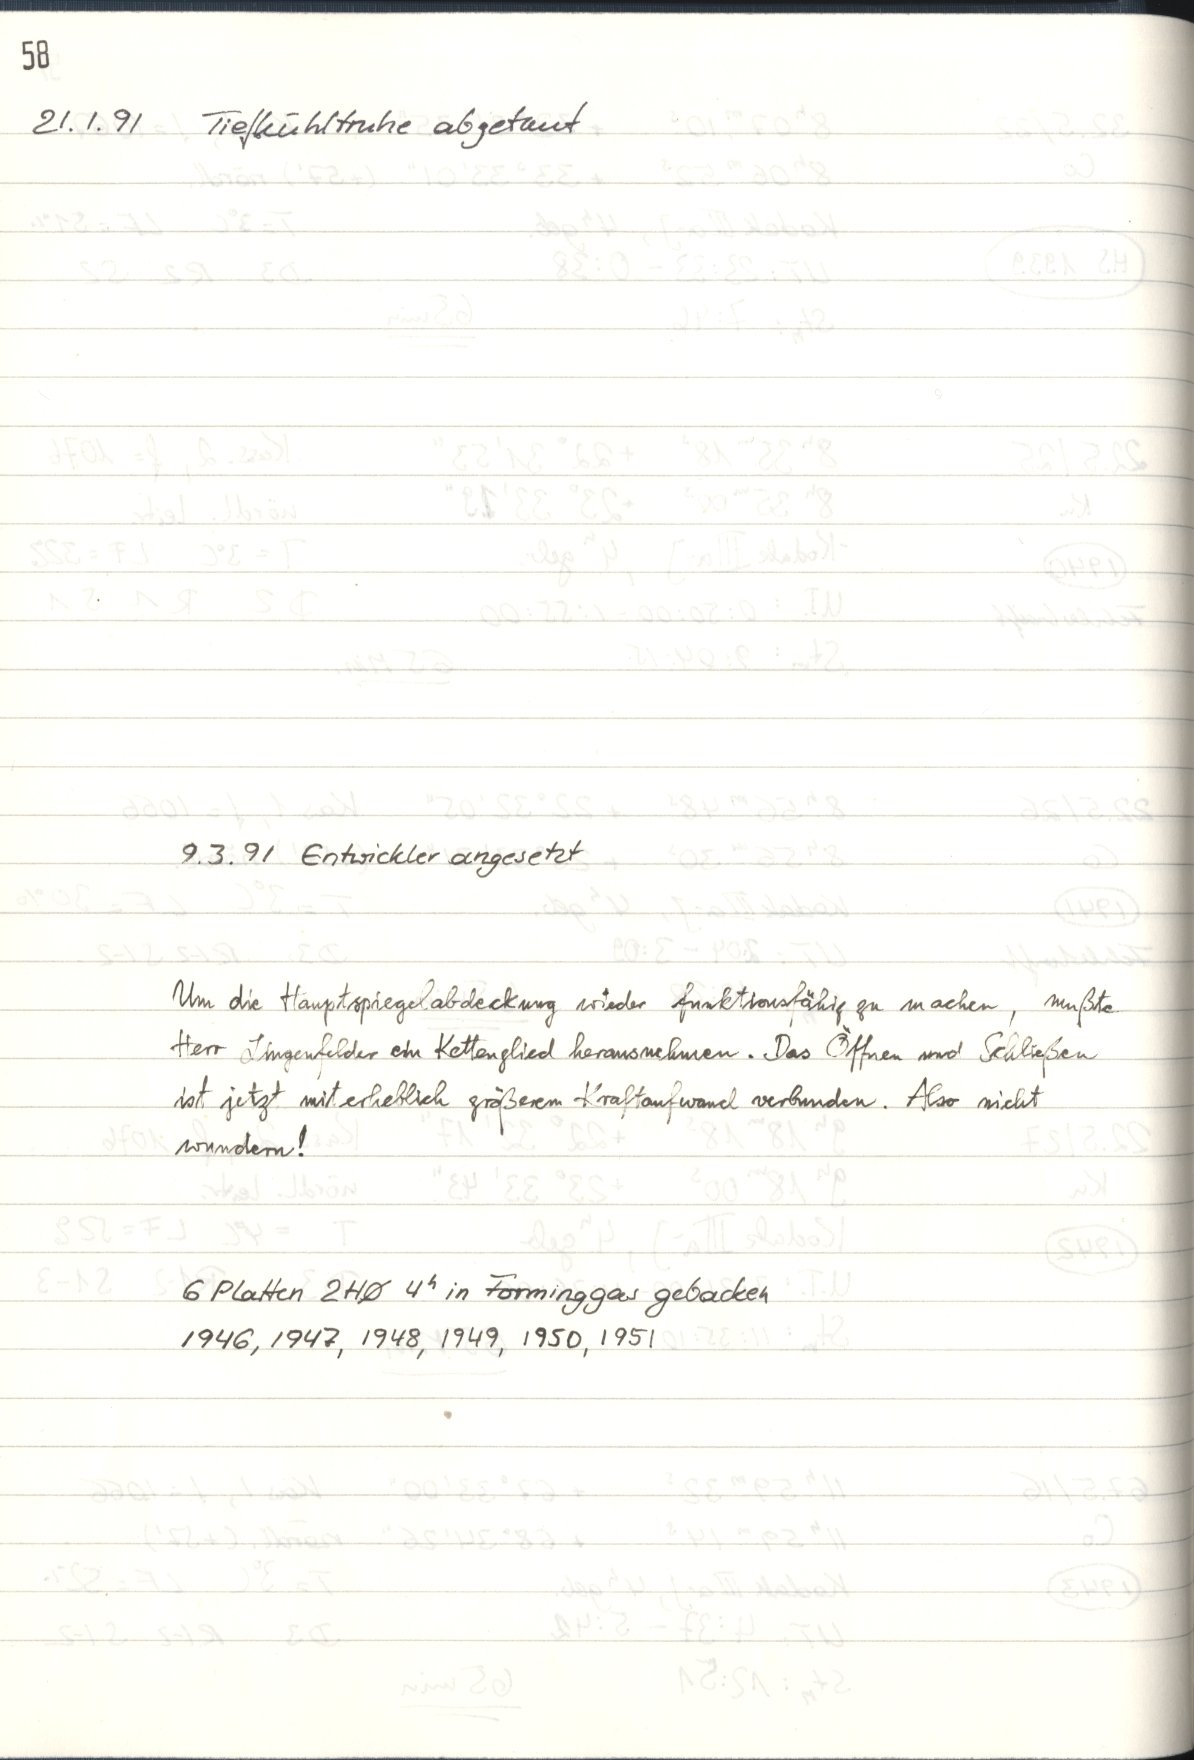 58
21.1.91 Tiefkühltruhe abgetaut
9.3.91 Entwickler angesetzt
Um die Hauptspiegelabdeckung wieder funktionsfähig zu machen, mußte
Herr Lingenfelder ein Kettenglied herausnehmen. Das Öffnen und Schließen
ist jetzt mit erheblich größerem Kraftaufwand verbunden. Also nicht
wundern!
6 Platten 2HØ 4h in Forminggas gebacken
1946, 1947, 1948, 1949, 1950, 1951